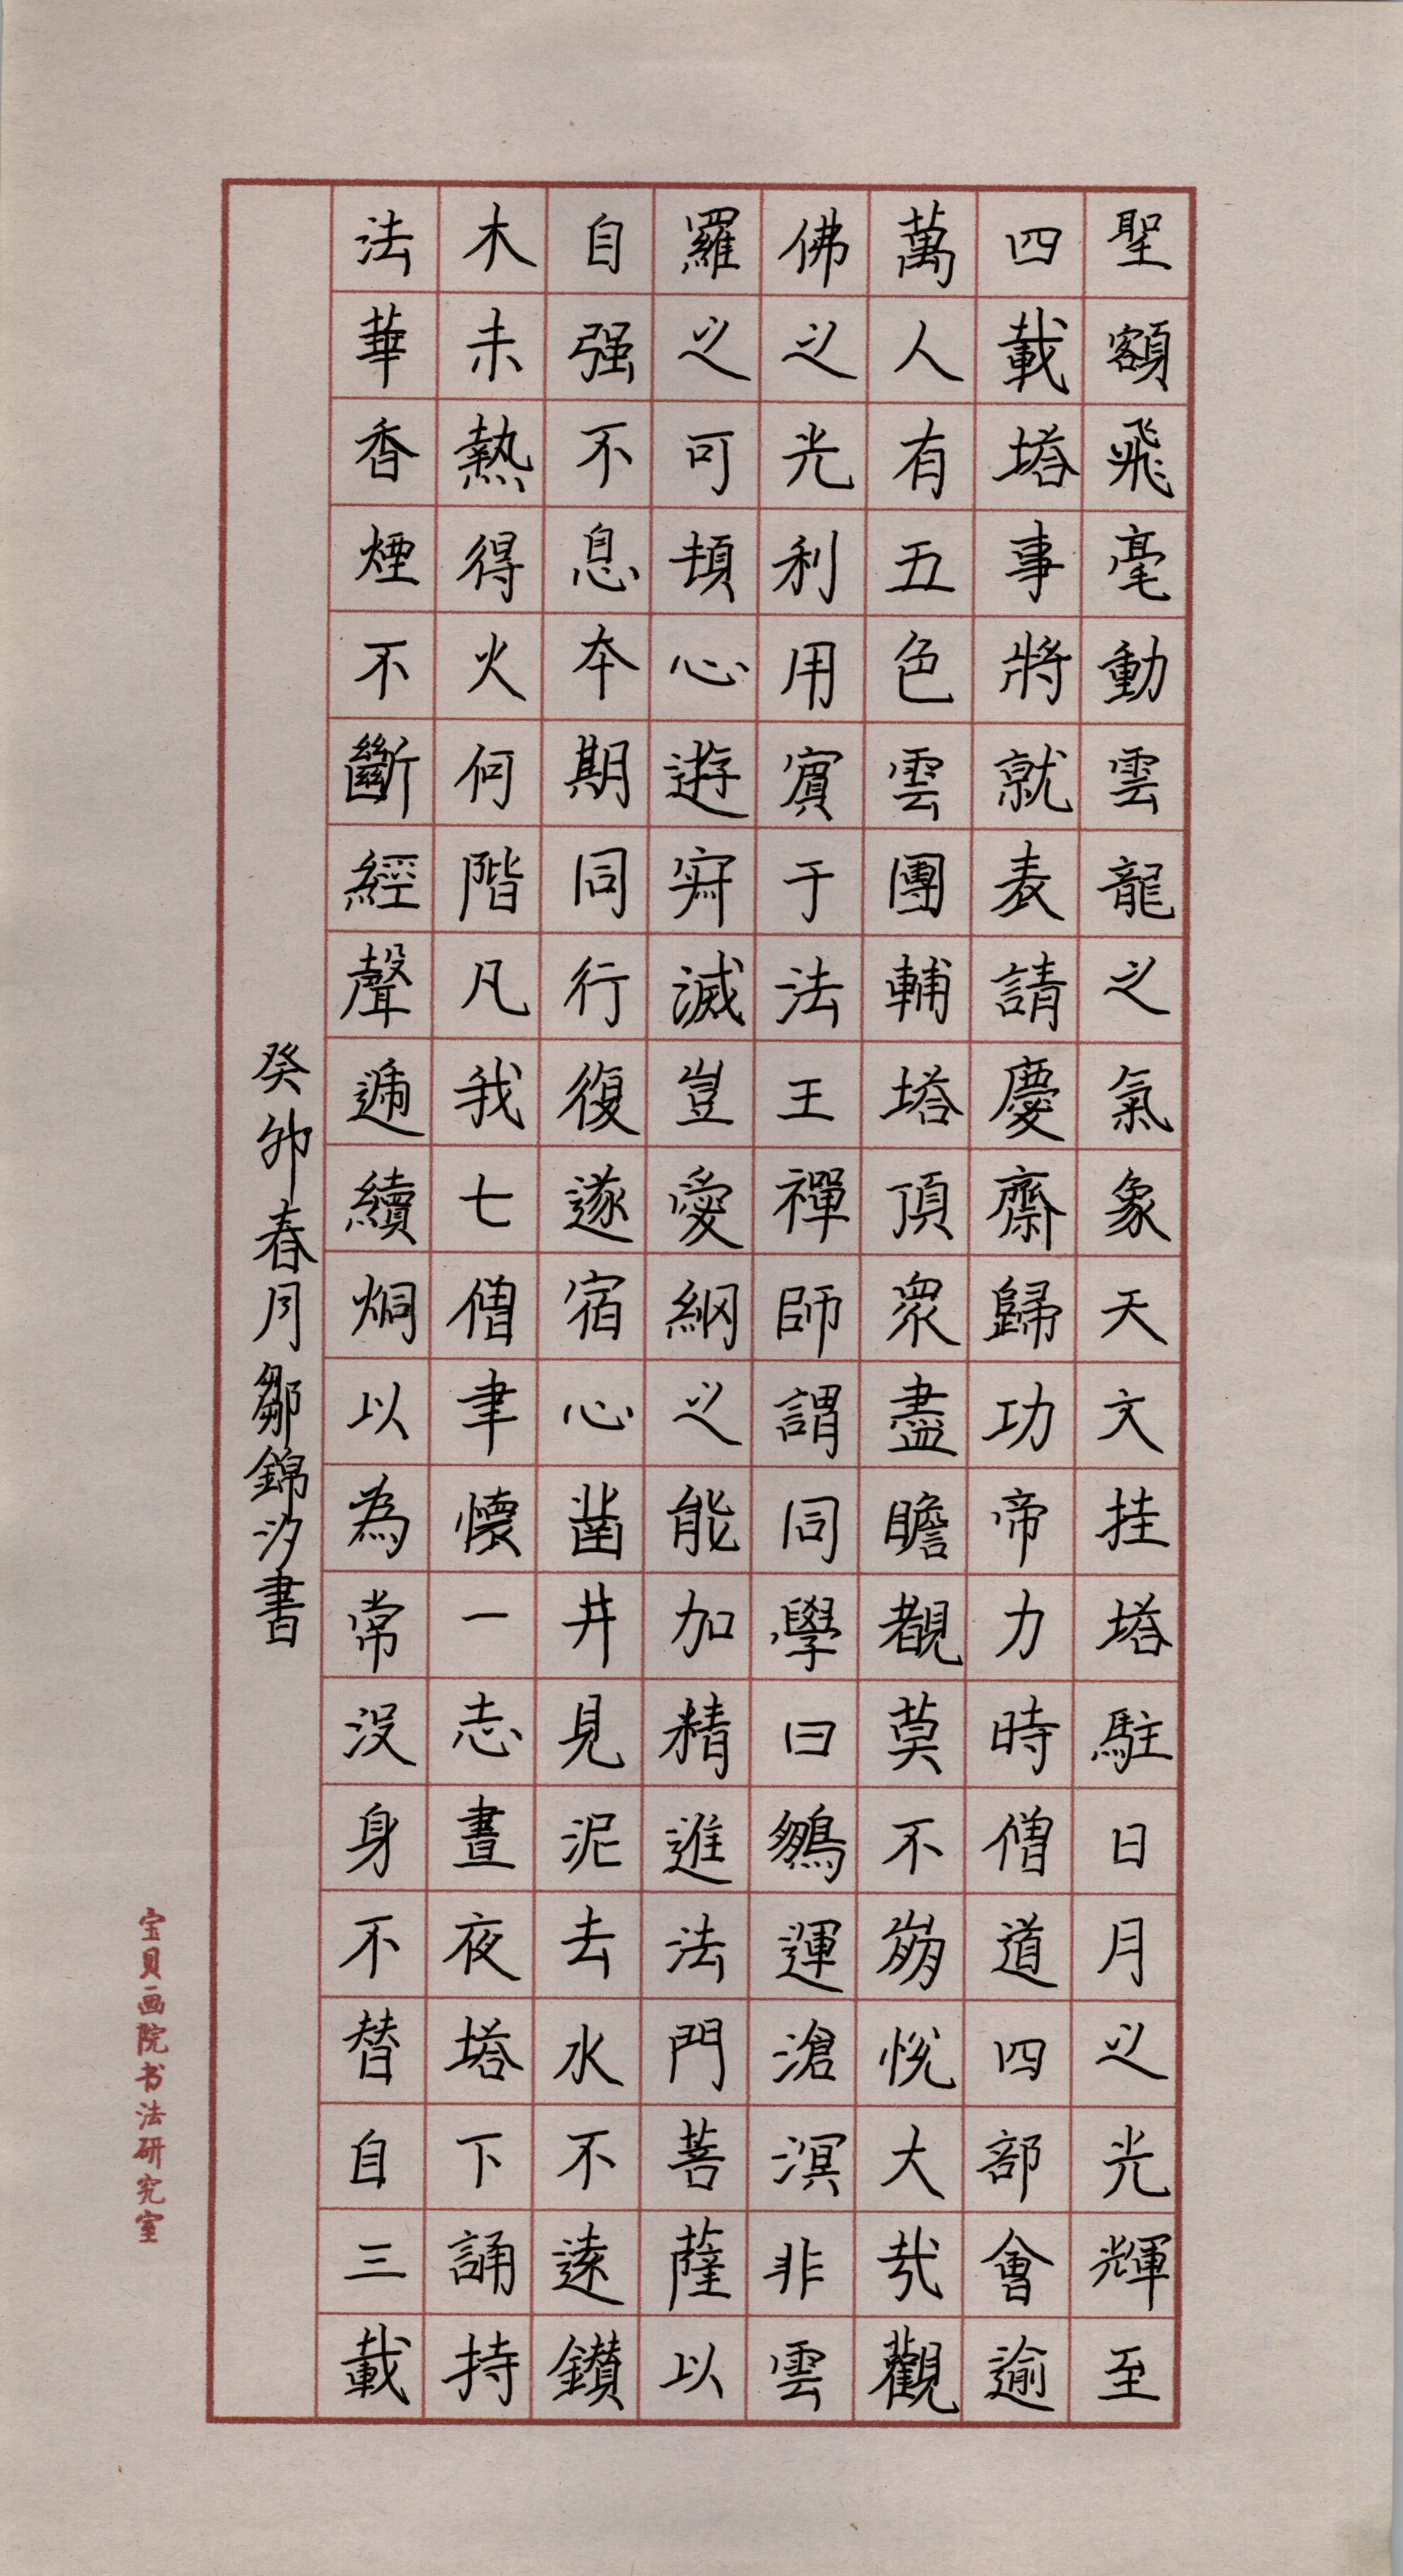 聖額飛毫動雲龍之氣象天文挂塔駐日月之光輝至
四載塔事將就表請慶齋歸功帝力時僧道四部會逾
萬人有五色雲團輔塔頂衆盡瞻覩莫不崩悅大哉觀
佛之光利用賓于法王禪師謂同學曰鵷運滄溟非雲
羅之可頓心遊寂滅豈愛綱之能加精進法門菩薩以
自强不息本期同行復遂宿心鑿井見泥去水不遠鑚
木未熱得火何階凡我七僧聿懷一志晝夜塔下誦持
法華香煙不斷經聲遞續烱以為常沒身不替自三載
癸卯春月鄒錦汐書
宝贝画院书法研究室